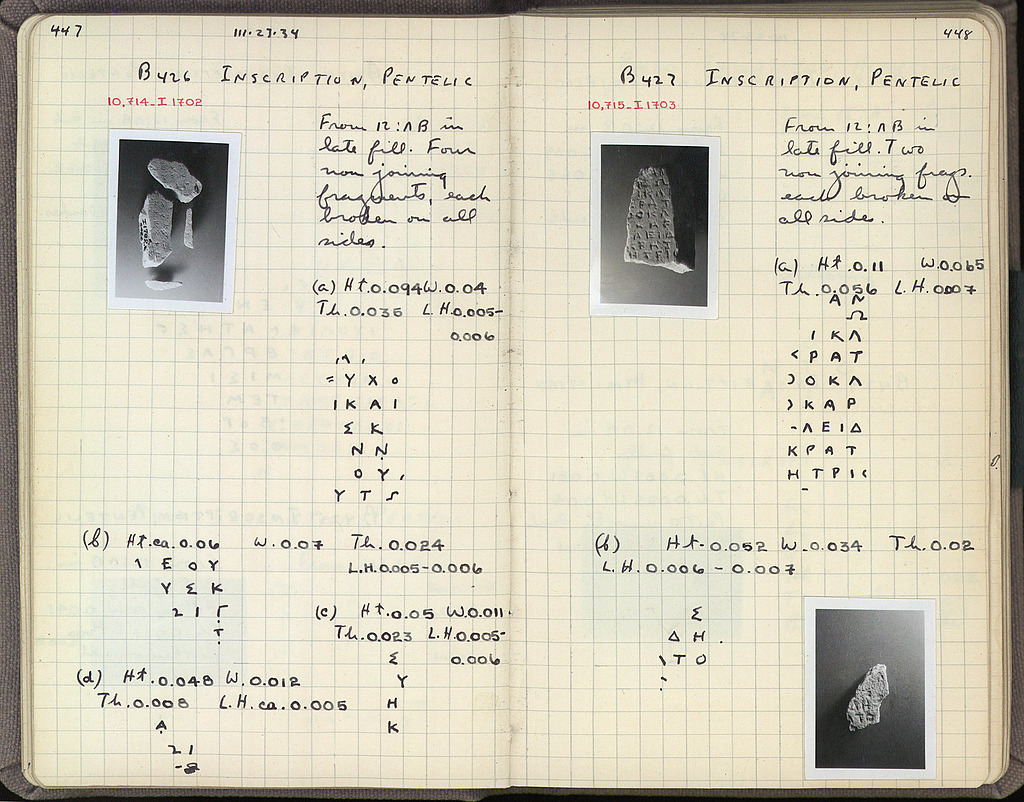 447
III·23·34
B 426 INSCRIPTION, PENTELIC
10,714_I 1702
From 12:ΛB in
late fill. Four
non joining
fragments, each
broken on all
sides.
(a) Ht.0.094 W.0.04
Th.0.035 L.H.0.005-
0.006
Υ Χ ο
Ι Κ Α Ι
Σ Κ
Ν Ν
Ο Υ
Υ Τ
(b) Ht.ca.0.06 W.0.07 Th.0.024
L.H.0.005-0.006
Ε Ο Υ
Υ Σ Κ
Τ
(c) Ht.0.05 W.0.011.
Th.0.023 L.H.0.005-
0.006
Σ
Υ
Η
Κ
(d) Ht.0.048 W.0.012
Th.0.008 L.H.ca.0.005
Α
448
B 427 INSCRIPTION, PENTELIC
10,715_I 1703
From 12:ΛB in
late fill. Two
non joining frags.
each broken
all sides.
(a) Ht.0.11 W.0.065
Th.0.056 L.H.0.007
Α Ν
Ω
Ι Κ Λ
< Ρ Α Τ
Ο Κ Λ
Κ Α Ρ
-Λ Ε Ι Δ
Κ Ρ Α Τ
Η Τ Ρ Ι
(b) Ht.0.052 W.0.034 Th.0.02
L.H.0.006 - 0.007
Σ
Δ Η .
Τ Ο